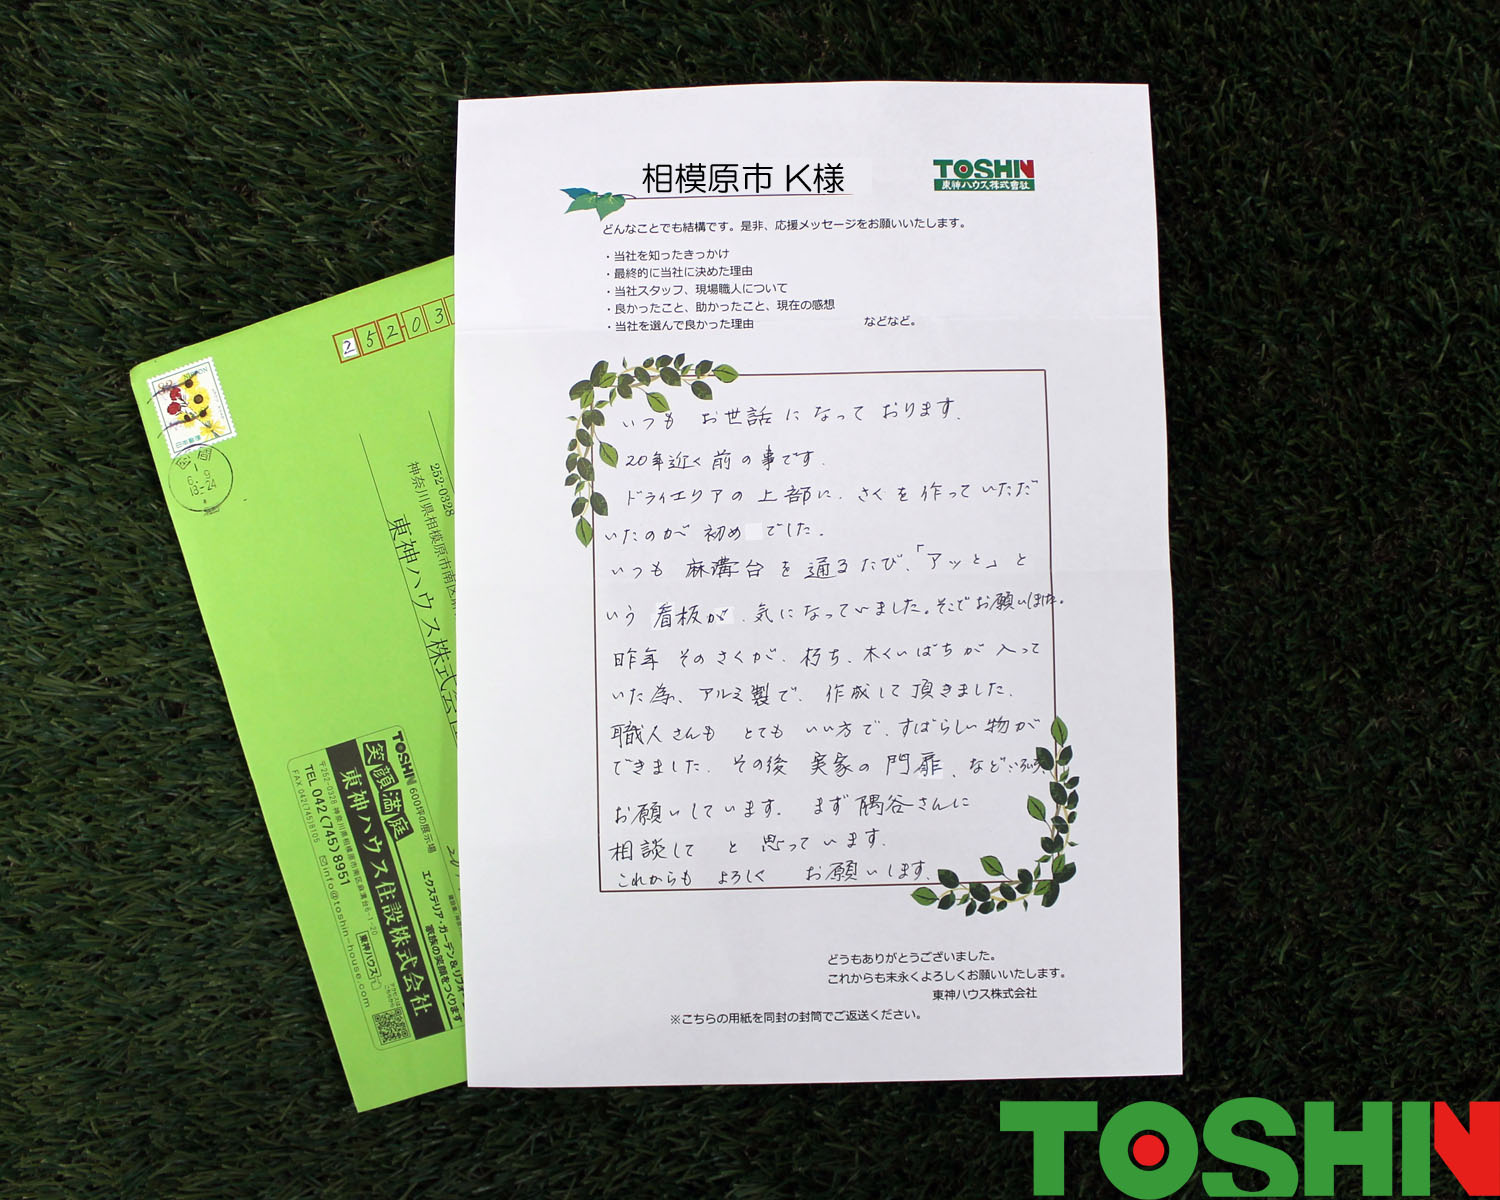 相模原市 K様
TOSHIN
東神ハウス株式會社
どんなことでも結構です。是非、応援メッセージをお願いいたします。
・当社を知ったきっかけ
・最終的に当社に決めた理由
・当社スタッフ、現場職人について
・良かったこと、助かったこと、現在の感想
・当社を選んで良かった理由 などなど。
いつも お世話になっております.
20年近く前の事です.
ドライエリアの上部に、さくを作っていただ
いたのが初め でした.
いつも 麻溝台を通るたび、「アッと」と
いう 看板が、気になっていました。そこでお願いしました。
昨年 そのさくが、朽ち、木くいばちが入って
いた為、アルミ製で、作成して頂きました.
職人さんも とても いい方で、すばらしい物が
できました. その後 実家の門扉、など
お願いしています. まず隅谷さんに
相談して と思っています.
これからも よろしく お願いします.
どうもありがとうございました。
これからも末永くよろしくお願いいたします。
東神ハウス株式会社
※こちらの用紙を同封の封筒でご返送ください。
25203
NIPPON
日本郵便
6. 9
13-24
252-0328
神奈川県相模原市南区麻
東神ハウス株式会社
TOSHIN
600坪の展示場
笑顔満庭
エクステリア・ガーデン&リフォ
家族の笑顔をつくります
東神ハウス住設株式会社
〒252-0328 神奈川県相模原市南区麻溝台6-1-20
TEL 042(745)8951
FAX 042(745)8105
info@toshin-house.com
東神ハウス
TOSHIN